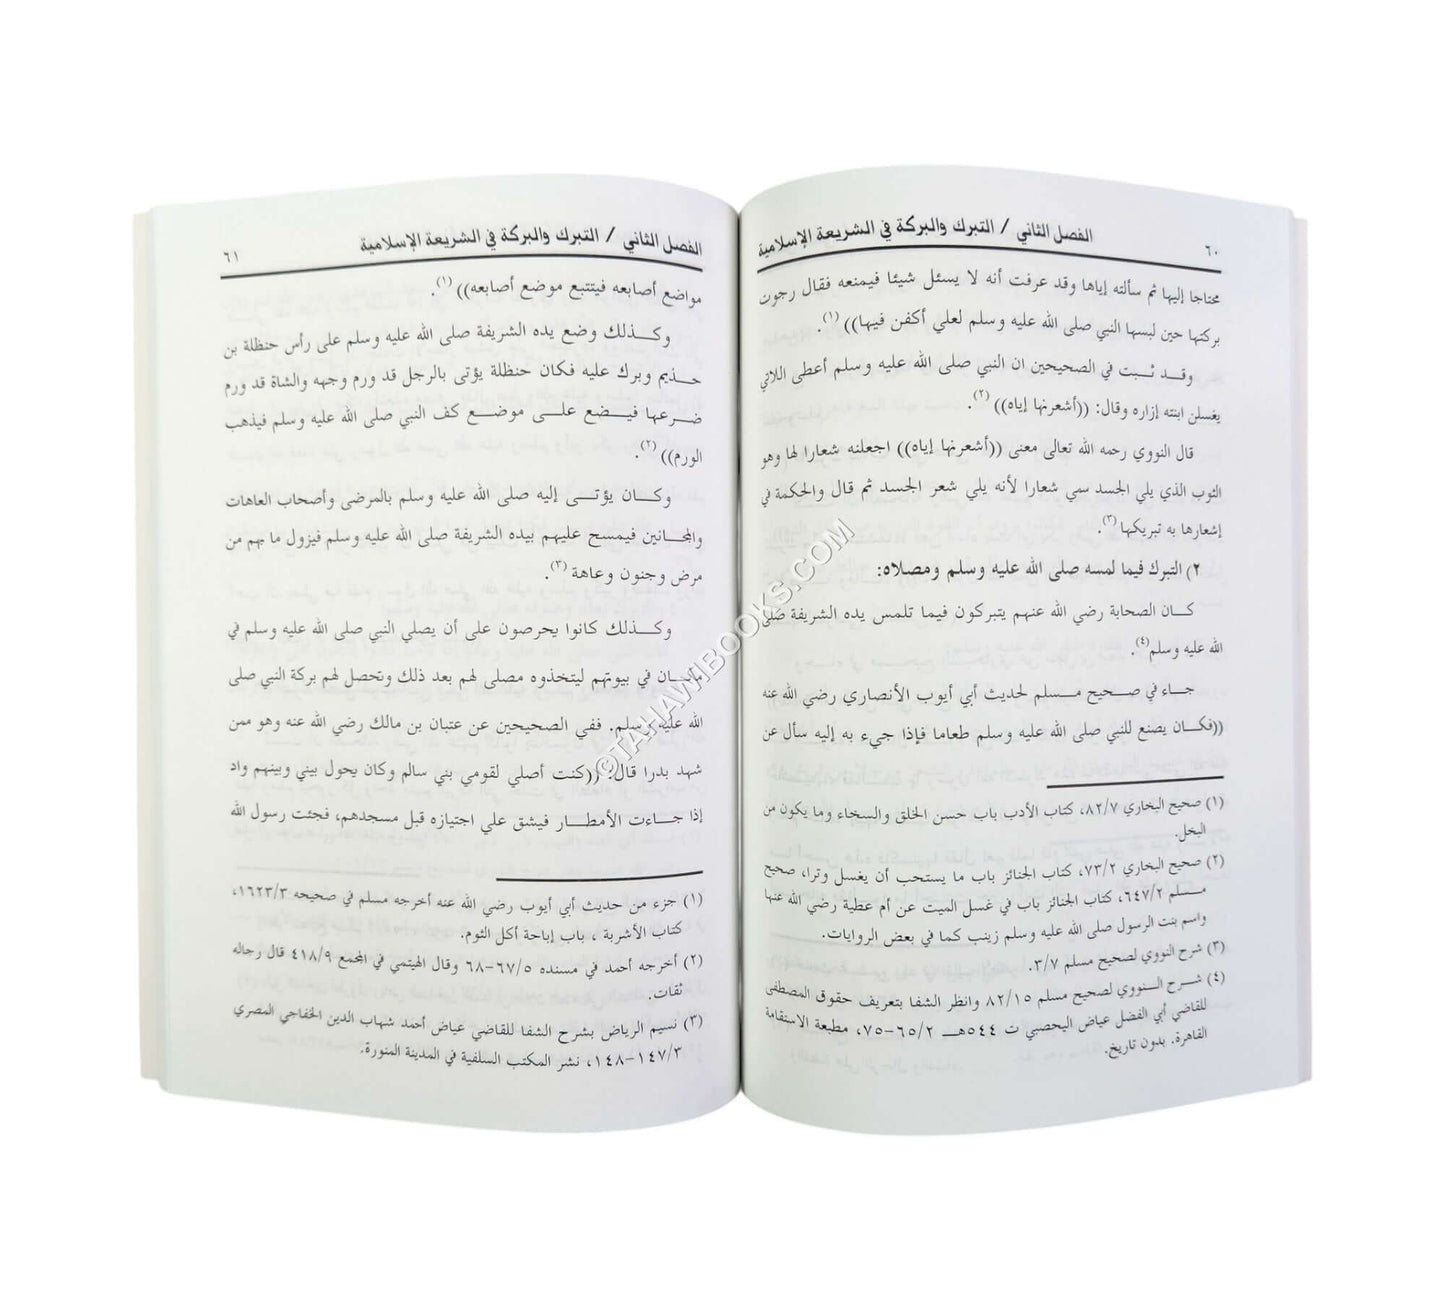 ٦٠ الفصل الثاني / التبرك والبركة في الشريعة الإسلامية
محتاجا إليها ثم سألته إياها وقد عرفت أنه لا يسئل شيئا فيمنعه فقال رجوت
بركتها حين لبسها النبي صلى الله عليه وسلم لعلي أكفن فيها)) (١).
وقد ثبت في الصحيحين ان النبي صلى الله عليه وسلم أعطى اللاتي
يغسلن ابنته إزاره وقال: ((أشعرنها إياه)) (٢).
قال النووي رحمه الله تعالى معنى ((أشعرنها إياه)) اجعلنه شعارا لها وهو
الثوب الذي يلي الجسد سمي شعارا لأنه يلي شعر الجسد ثم قال والحكمة في
إشعارها به تبريكها (٣).
٢) التبرك فيما لمسه صلى الله عليه وسلم ومصلاه:
كان الصحابة رضي الله عنهم يتبركون فيما تلمس يده الشريفة صلى
الله عليه وسلم(٤).
جاء في صحيح مسلم لحديث أبي أيوب الأنصاري رضي الله عنه
((فكان يصنع للنبي صلى الله عليه وسلم طعاما فإذا جيء به إليه سأل عن
(١) صحيح البخاري ٨٢/٧، كتاب الأدب باب حسن الخلق والسخاء وما يكون من
البخل.
(٢) صحيح البخاري ٧٣/٢، كتاب الجنائز باب ما يستحب أن يغسل وترا، صحيح
مسلم ٦٤٧/٢، كتاب الجنائز باب في غسل الميت عن أم عطية رضي الله عنها
واسم بنت الرسول صلى الله عليه وسلم زينب كما في بعض الروايات.
(٣) شرح النووي لصحيح مسلم ٣/٧.
(٤) شرح النووي لصحيح مسلم ٨٢/١٥ وانظر الشفا بتعريف حقوق المصطفى
للقاضي أبي الفضل عياض اليحصبي ت ٥٤٤هـ ٦٥/٢–٧٥، مطبعة الاستقامة
القاهرة. بدون تاريخ.
الفصل الثاني / التبرك والبركة في الشريعة الإسلامية ٦١
مواضع أصابعه فيتتبع موضع أصابعه)) (١).
وكذلك وضع يده الشريفة صلى الله عليه وسلم على رأس حنظلة بن
حذيم وبرك عليه فكان حنظلة يؤتى بالرجل قد ورم وجهه والشاة قد ورم
ضرعها فيضع على موضع كف النبي صلى الله عليه وسلم فيذهب
الورم)) (٢).
وكان يؤتى إليه صلى الله عليه وسلم بالمرضى وأصحاب العاهات
والمجانين فيمسح عليهم بيده الشريفة صلى الله عليه وسلم فيزول ما بهم من
مرض وجنون وعاهة (٣).
وكذلك كانوا يحرصون على أن يصلي النبي صلى الله عليه وسلم في
مكان في بيوتهم ليتخذوه مصلى لهم بعد ذلك وتحصل لهم بركة النبي صلى
الله عليه وسلم. ففي الصحيحين عن عتبان بن مالك رضي الله عنه وهو ممن
شهد بدرا قال: ((كنت أصلي لقومي بني سالم وكان يحول بيني وبينهم واد
إذا جاءت الأمطار فيشق علي اجتيازه قبل مسجدهم، فجئت رسول الله
(١) جزء من حديث أبي أيوب رضي الله عنه أخرجه مسلم في صحيحه ١٦٢٣/٣،
كتاب الأشربة ، باب إباحة أكل الثوم.
(٢) أخرجه أحمد في مسنده ٦٧/٥–٦٨ وقال الهيتمي في المجمع ٤١٨/٩ قال رجاله
ثقات.
(٣) نسيم الرياض بشرح الشفا للقاضي عياض أحمد شهاب الدين الخفاجي المصري
١٤٧/٣–١٤٨، نشر المكتب السلفية في المدينة المنورة.
©TAHAWIBOOKS.COM